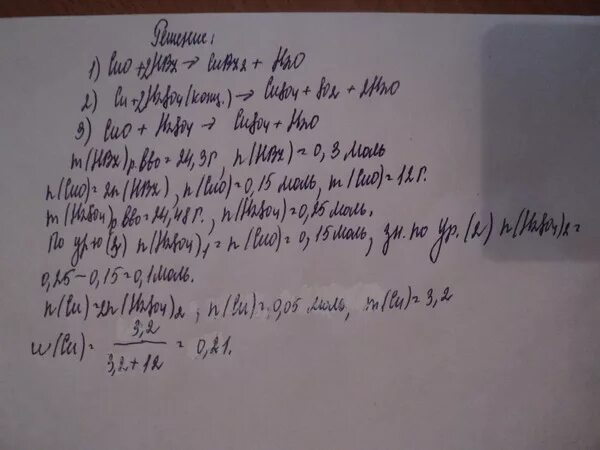 Решение:
1) CuO + 2HBr → CuBr2 + H2O
2) Cu + 2H2SO4 (конц.) → CuSO4 + SO2 + 2H2O
3) CuO + H2SO4 → CuSO4 + H2O
m(HBr)р.вво = 24,3г, n(HBr) = 0,3 моль
n(CuO) = 2n(HBr), n(CuO) = 0,15 моль, m(CuO) = 12г.
m(H2SO4)р.вво = 24,48г., n(H2SO4) = 0,25 моль.
По ур.ю (3) n(H2SO4)1 = n(CuO) = 0,15 моль, зн. по ур. (2) n(H2SO4)2 =
0,25 – 0,15 = 0,1 моль.
n(Cu) = 2n(H2SO4)2, n(Cu) = 0,05 моль, m(Cu) = 3,2
w(Cu) = 3,2 / 3,2 + 12 = 0,21.